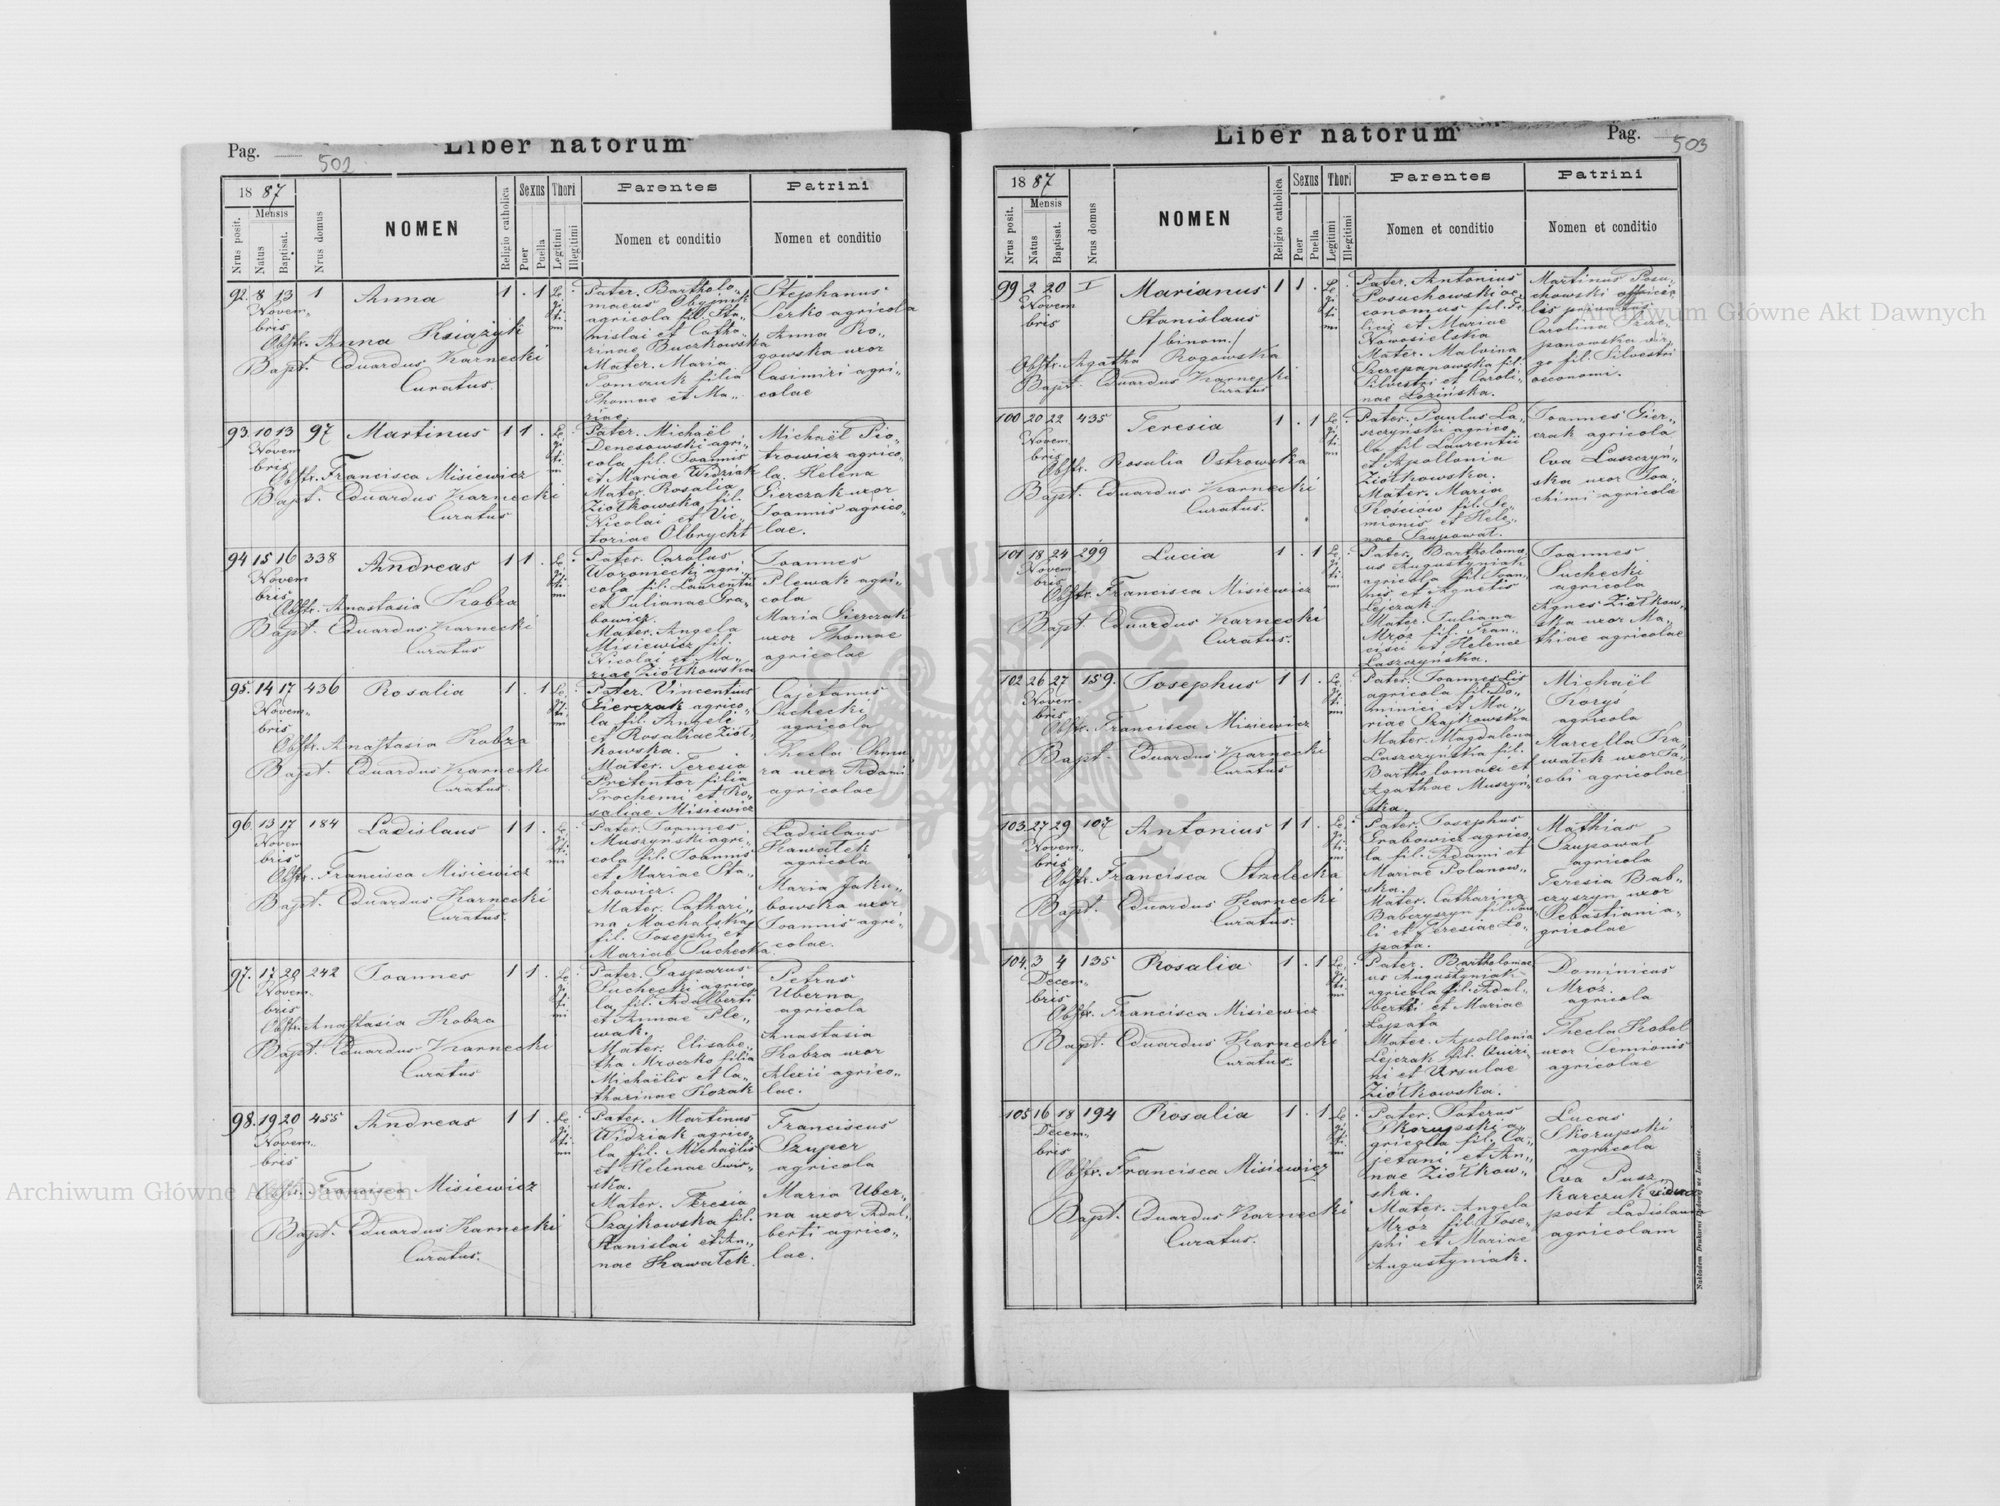 Pag. 502
Liber natorum
18 87
Nrus posit.
Mensis
Natus
Baptisat.
Nrus domus
NOMEN
Religio catholica
Sexus
Puer
Puella
Thori
Legitimi
Illegitimi
Parentes
Nomen et conditio
Patrini
Nomen et conditio
92. 8 13 1 Anna 1 . 1
Novem-
bris
Obstr. Anna Książyk
Bapt. Eduardus Karnecki
Curatus.
Legitimi
Pater. Bartholo-
maeus
agricola fil. Sta-
nislai et Catha-
rinae Buczkowska
Mater. Maria
Tomczuk filia
Thomae et Ma-
riae
Stephanus
Serko agricola
Anna Ro-
gowska uxor
Casimiri agri-
colae
93. 10 13 97 Martinus 1 1 .
Novem
bris
Obstr. Francisca Misiewicz
Bapt. Eduardus Karnecki
Curatus
Legitimi
Pater. Michaël
Denesowski agri-
cola fil. Joannis
et Mariae Widziak
Mater. Rosalia
Ziółkowska fil.
Nicolai et Vic-
toriae Olbrycht
Michaël Pio-
trowicz agrico-
la. Helena
Gierczak uxor
Joannis agrico-
lae.
94 15 16 338 Andreas 1 1 .
Novem
bris
Obstr. Anastasia Kobza
Bapt. Eduardus Karnecki
Curatus
Legitimi
Pater. Carolus
Woroniecki agri-
cola fil. Laurentii
et Julianae Gra-
bowicz.
Mater. Angela
Misiewicz fil.
Nicolai et Ma-
riae Ziółkowska
Joannes
Plewak agri-
cola
Maria Gierczak
uxor Thomae
agricolae
95. 14 17 436 Rosalia 1 . 1
Novem-
bris
Obstr. Anastasia Kobza
Bapt. Eduardus Karnecki
Curatus.
Legitimi
Pater. Vincentius
Gierczak agrico-
la fil. Angeli
et Rosaliae Ziół-
kowska.
Mater. Teresia
Pretentor filia
Trochemi et Ro-
saliae Misiewicz
Cajetanus
Suchecki
agricola
Thecla Chmu
ra uxor Adami
agricolae
96. 13 17 184 Ladislaus 1 1 .
Novem
bris
Obstr. Francisca Misiewicz
Bapt. Eduardus Karnecki
Curatus.
Legitimi
Pater. Joannes
Muszyński agri-
cola fil. Joannis
et Mariae Sta-
chowicz.
Mater. Cathari-
na Machalska
fil. Josephi et
Mariae Suchecka
Ladislaus
Kawałek
agricola
Maria Jaku-
bowska uxor
Joannis agri-
colae.
97. 17 20 242 Joannes 1 1 .
Novem-
bris
Obstr. Anastasia Kobza
Bapt. Eduardus Karnecki
Curatus
Legitimi
Pater. Gasparus
Suchecki agrico
la fil. Adalberti
et Annae Ple-
wak.
Mater. Elisabe-
tha Mroczko filia
Michaëlis et Ca-
tharinae Kozak
Petrus
Uberna
agricola
Anastasia
Kobza uxor
Alexii agrico-
lae.
98. 19 20 455 Andreas 1 1 .
Novem-
bris
Obstr. Francisca Misiewicz
Bapt. Eduardus Karnecki
Curatus.
Legitimi
Pater. Martinus
Widziak agrico-
la fil. Michaëlis
et Helenae Swir-
ska.
Mater. Teresia
Szajkowska fil.
Stanislai et An-
nae Kawałek.
Franciscus
Szuper
agricola
Maria Uber-
na uxor Adal-
berti agrico-
lae.
Liber natorum
Pag. 503
18 87
Nrus posit.
Mensis
Natus
Baptisat.
Nrus domus
NOMEN
Religio catholica
Sexus
Puer
Puella
Thori
Legitimi
Illegitimi
Parentes
Nomen et conditio
Patrini
Nomen et conditio
99 2 20 I Marianus 1 1 .
Novem
bris
Stanislaus
/binom./
Obstr. Agatha Rogowska
Bapt. Eduardus Karnecki
Curatus
Legitimi
Pater. Antonius
Posuchowski oe-
conomus fil. Fe-
lius et Mariae
Nowosielska
Mater. Malvina
Szczepanowska fil.
Silvestri et Caroli-
nae Łozińska.
Martinus Posu-
chowski
Carolina Szcze-
panowska vir-
go fil. Silvestri
oeconomi.
100 20 22 435 Teresia 1 . 1
Novem
bris
Obstr. Rosalia Ostrowska
Bapt. Eduardus Karnecki
Curatus.
Legitimi
Pater. Paulus La-
szczyński agrico-
la fil Laurentii
et Apollonia
Ziółkowska.
Mater. Maria
Kościów fil. Se-
mionis et Hele-
nae Szupowal.
Joannes Gier-
czak agricola
Eva Laszczyń-
ska uxor Joa-
chimi agricolae
101 18 24 299 Lucia 1 . 1
Novem
bris
Obstr. Francisca Misiewicz
Bapt. Eduardus Karnecki
Curatus.
Legitimi
Pater. Bartholomae
us Augustyniak
agricola fil. Joan-
nis et Agnetis
Lejczak.
Mater. Juliana
Mroz fil. Fran-
cisci et Helenae
Laszczyńska.
Joannes
Suchecki
agricola
Agnes Ziółkow-
ska uxor Ma-
thiae agricolae
102 26 27 159. Josephus 1 1 .
Novem-
bris
Obstr. Francisca Misiewicz
Bapt. Eduardus Karnecki
Curatus
Legitimi
Pater. Joannes Lis
agricola fil. Do-
minici et Ma-
riae Szajkowska
Mater. Magdalena
Laszczyńska fil.
Bartholomaei et
Agathae Muszyń-
ska.
Michaël
Korys
agricola
Marcella Ka-
wałek uxor Ja-
cobi agricolae
103. 27 29 107 Antonius 1 1 .
Novem-
bris
Obstr. Francisca Strzelecka
Bapt. Eduardus Karnecki
Curatus.
Legitimi
Pater. Josephus
Grabowicz agrico-
la fil. Adami et
Mariae Polanow-
ska.
Mater. Catharina
Babczyszyn fil. Pau-
li et Teresiae Lo-
pata.
Mathias
Szupowal
agricola
Teresia Bab-
czyszyn uxor
Sebastiani a-
gricolae
104. 3 4 135 Rosalia 1 . 1
Decem-
bris
Obstr. Francisca Misiewicz
Bapt. Eduardus Karnecki
Curatus.
Legitimi
Pater. Bartholomae
us Augustyniak
agricola fil. Adal-
berti et Mariae
Lopata
Mater. Apollonia
Lejczak fil. Quiri-
ni et Ursulae
Ziółkowska.
Dominicus
Mroz.
agricola
Thecla Kobel
uxor Semionis
agricolae
105 16 18 194 Rosalia 1 . 1
Decem-
bris
Obstr. Francisca Misiewicz
Bapt. Eduardus Karnecki
Curatus.
Legitimi
Pater. Paterus
Skorupski a-
gricola fil. Ca-
jetani et An-
nae Ziółkow-
ska.
Mater. Angela
Mróz fil. Jose-
phi et Mariae
Augustyniak.
Lucas
Skorupski
agricola
Eva Pusz-
karczuk vidua
post Ladislaum
agricolam
Nakładem Drukarni Ludowej we Lwowie.
Archiwum Główne Akt Dawnych
Archiwum Główne Akt Dawnych